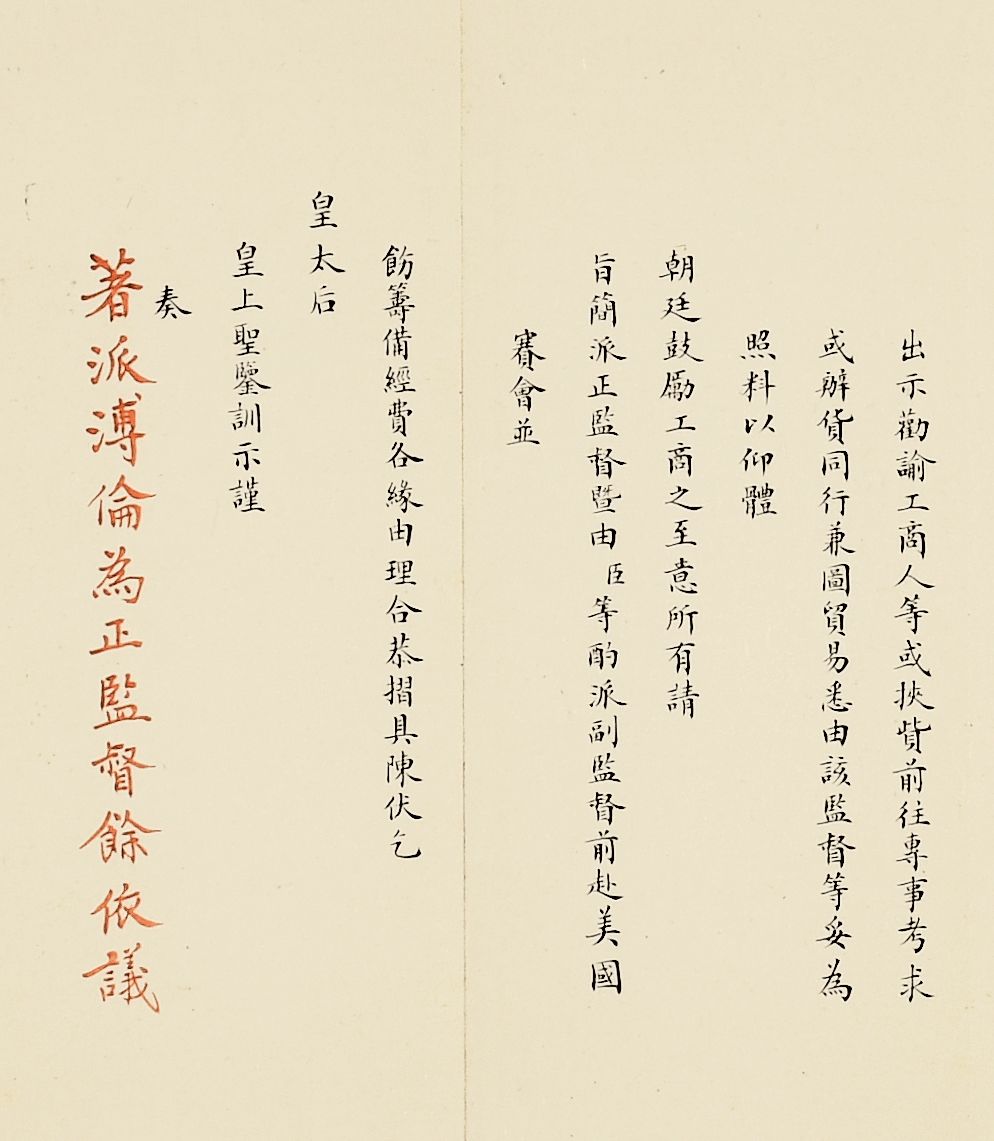 出示勸諭工商人等或挾貲前往專事考求
或辦貨同行兼圖貿易悉由該監督等妥為
照料以仰體
朝廷鼓勵工商之至意所有請
旨簡派正監督暨由臣等酌派副監督前赴美國
賽會並
飭籌備經費各緣由理合恭摺具陳伏乞
皇太后
皇上聖鑒訓示謹
奏
著派溥倫為正監督餘依議